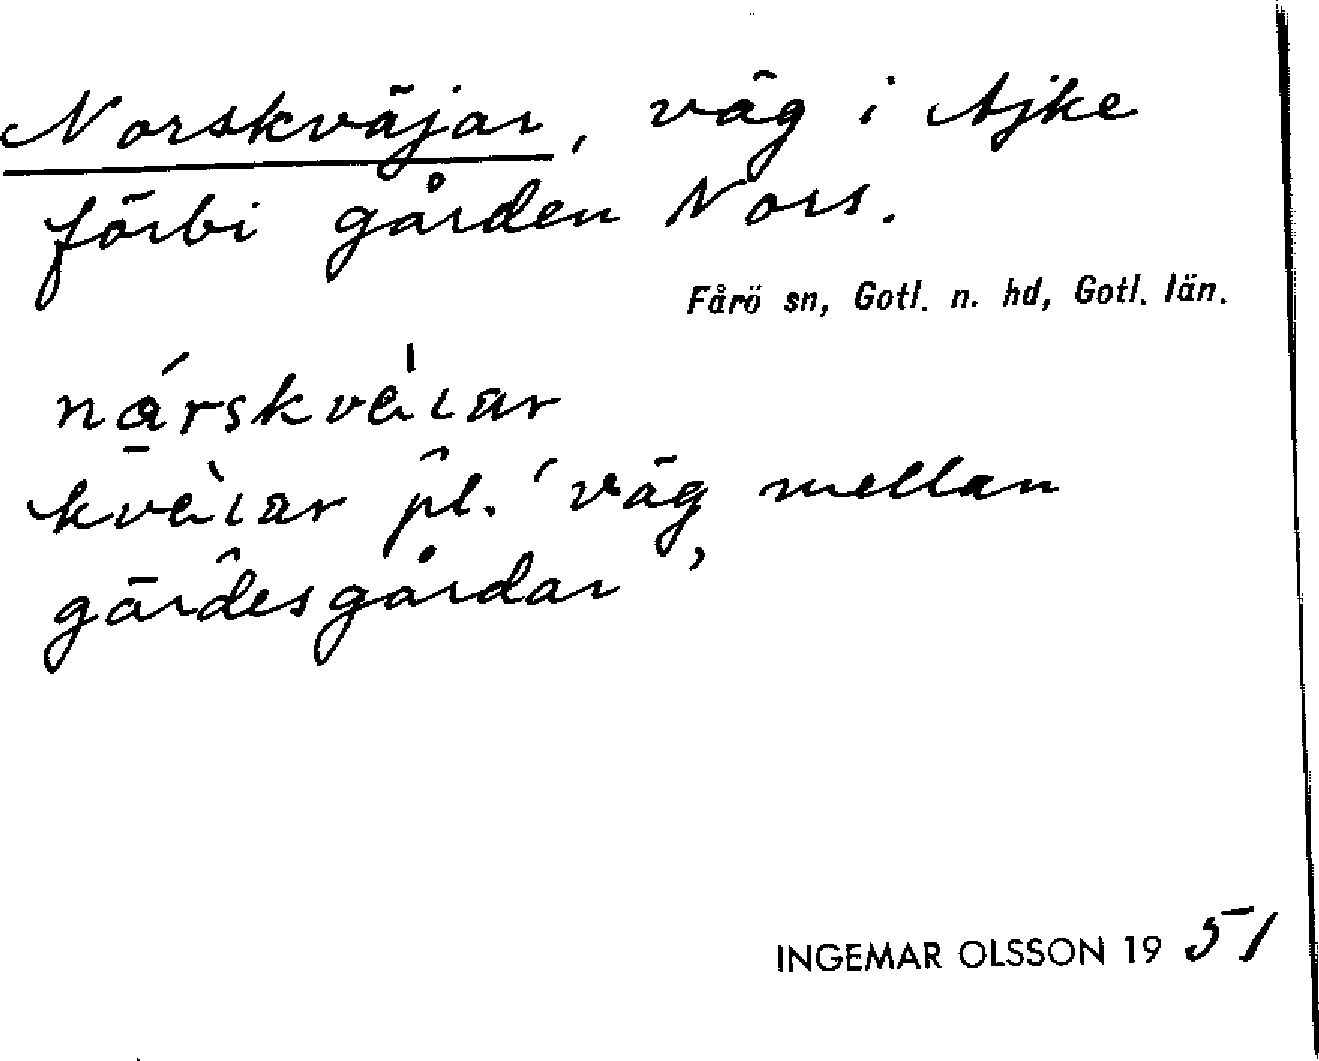 Norskväjar, väg i Ajke
förbi gården Nors.
Fårö sn, Gotl. n. hd, Gotl. län.
kvèιar pl. 'väg mellan
gärdesgårdar'
INGEMAR OLSSON 19 51